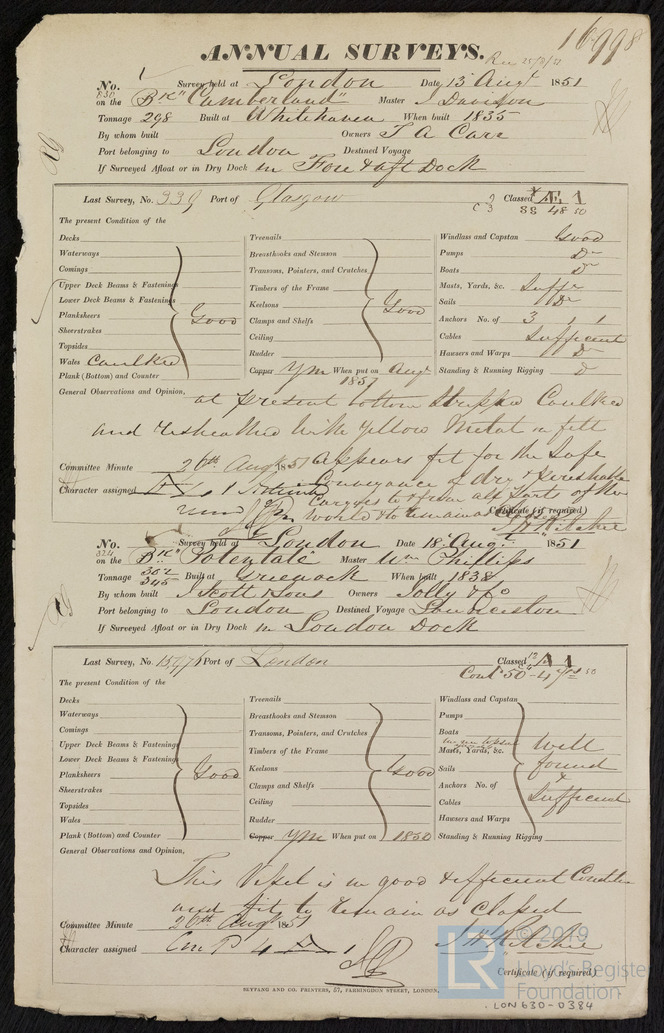 16998
ANNUAL SURVEYS.
Rec 25/8/51
No. 830 Survey held at London Date 13 Augt 1851
on the Bk "Cumberland" Master J Davison
Tonnage 298 Built at Whitehaven When built 1835
By whom built Owners T A Carr
Port belonging to London Destined Voyage
If Surveyed Afloat or in Dry Dock in Fore & aft Dock
Last Survey, No. 339 Port of Glasgow Classed Æ 1
The present Condition of the
Decks
Waterways
Comings
Upper Deck Beams & Fastenings
Lower Deck Beams & Fastenings
Planksheers Good
Sheerstrakes
Topsides
Wales Caulked
Plank (Bottom) and Counter
Treenails
Breasthooks and Stemson
Transoms, Pointers, and Crutches
Timbers of the Frame
Keelsons Good
Clamps and Shelfs
Ceiling
Rudder
Copper YM When put on Augt 1851
Windlass and Capstan Good
Pumps Do
Boats Do
Masts, Yards, &c. Sufft
Sails Do
Anchors No. of 3 1 1
Cables Sufficient
Hawsers and Warps Do
Standing & Running Rigging Do
General Observations and Opinion, at present bottom stripped Caulked
and resheathed with Yellow Metal on felt
appears fit for the safe
Committee Minute 26th Augt 1851
Conveyance of dry & perishable
Character assigned Æ 1
Cargoes to & from all parts of the
World & to remain as
Certificate (if required)
No. 824 Survey held at London Date 18 Augt 1851
on the Bk "Potentate" Master Wm Phillips
Tonnage 302 345 Built at Greenock When built 1838
By whom built J Scott & Sons Owners Jolly & Co
Port belonging to London Destined Voyage Launceston
If Surveyed Afloat or in Dry Dock in London Dock
Last Survey, No. 15976 Port of London Classed 12 A 1
Cont 50 - 4 yrs
The present Condition of the
Decks
Waterways
Comings
Upper Deck Beams & Fastenings
Lower Deck Beams & Fastenings
Planksheers Good
Sheerstrakes
Topsides
Wales
Plank (Bottom) and Counter
Treenails
Breasthooks and Stemson
Transoms, Pointers, and Crutches
Timbers of the Frame
Keelsons Good
Clamps and Shelfs
Ceiling
Rudder
Copper YM When put on 1850
Windlass and Capstan
Pumps
Boats
Masts, Yards, &c. Well
Sails found
Anchors No. of &
Cables Sufficient
Hawsers and Warps
Standing & Running Rigging
General Observations and Opinion,
This Vessel is in good & efficient Condition
and fit to remain as Classed
Committee Minute 26th Augt 1851
Character assigned Cont 4 A 1
Certificate (if required)
SEYFANG AND CO. PRINTERS, 57, FARRINGDON STREET, LONDON.
LR
© 2019
Lloyd's Register
Foundation
LON630-0384